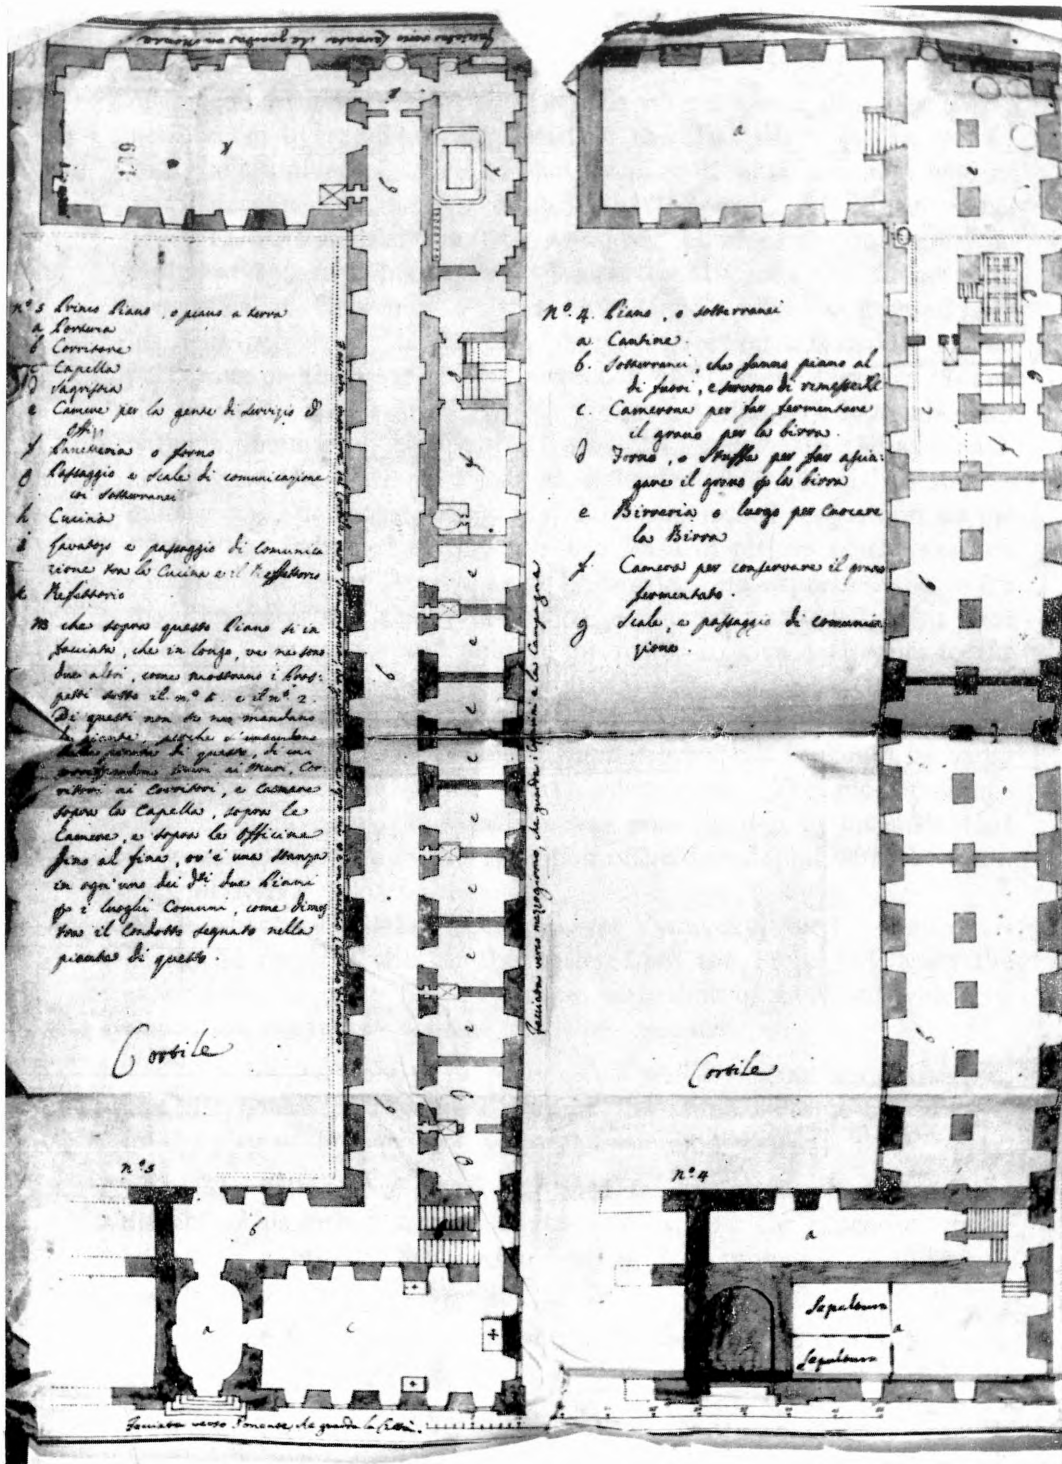 Facciata verso Levante che guarda un
n.° 3 Primo Piano, o piano a terra
a Portaria
b Corritore
c Capella
d Sagristia
e Camere per la gente di servizio ed
offizj
f Panetteria o forno
g Passaggio e Scale di comunicazione
coi Sotterranei
h Cucina
i Lavatojo e passaggio di Comunica
zione tra la Cucina e il Reffettorio
k Refettorio
NB che sopra questo Piano si in
facciata, che in longo, ve ne sono
due altri, come mostrano i Pros-
petti sotto il n.° 1. e il n.° 2.
Di questi non se ne mandano
le piante, perche
dalla pianta di questo, di cui
corrispondono muri ai Muri, Cor
ritori ai Corritori, e Camere
sopra la Capella, sopra le
Camere, e sopra le Officine
fino al fine, ov'è una stanza
in ogn'uno dei d.ti due Piani
p i luoghi Comuni, come dimos
tra il Condotto segnato nella
pianta di questo.
Cortile
n.° 3
Facciata verso Ponente che guarda la Città.
Facciata verso mezzogiorno, che guarda i Giardini e la Campagna
n.° 4. Piano, o sotterranei
a. Cantine.
b. Sotterranei, che fanno piano al
di fuori, e servono di rimesse &c
c. Camerone per far fermentare
il grano per la birra.
d Forno, o Stuffa per far asciu-
gare il grano p la birra
e Birreria o luogo per cuocere
la Birra
f. Camera per conservare il grano
fermentato.
g Scale, e passaggio di comunica
zione.
Cortile
n.° 4
Sepultura
Sepultura
139